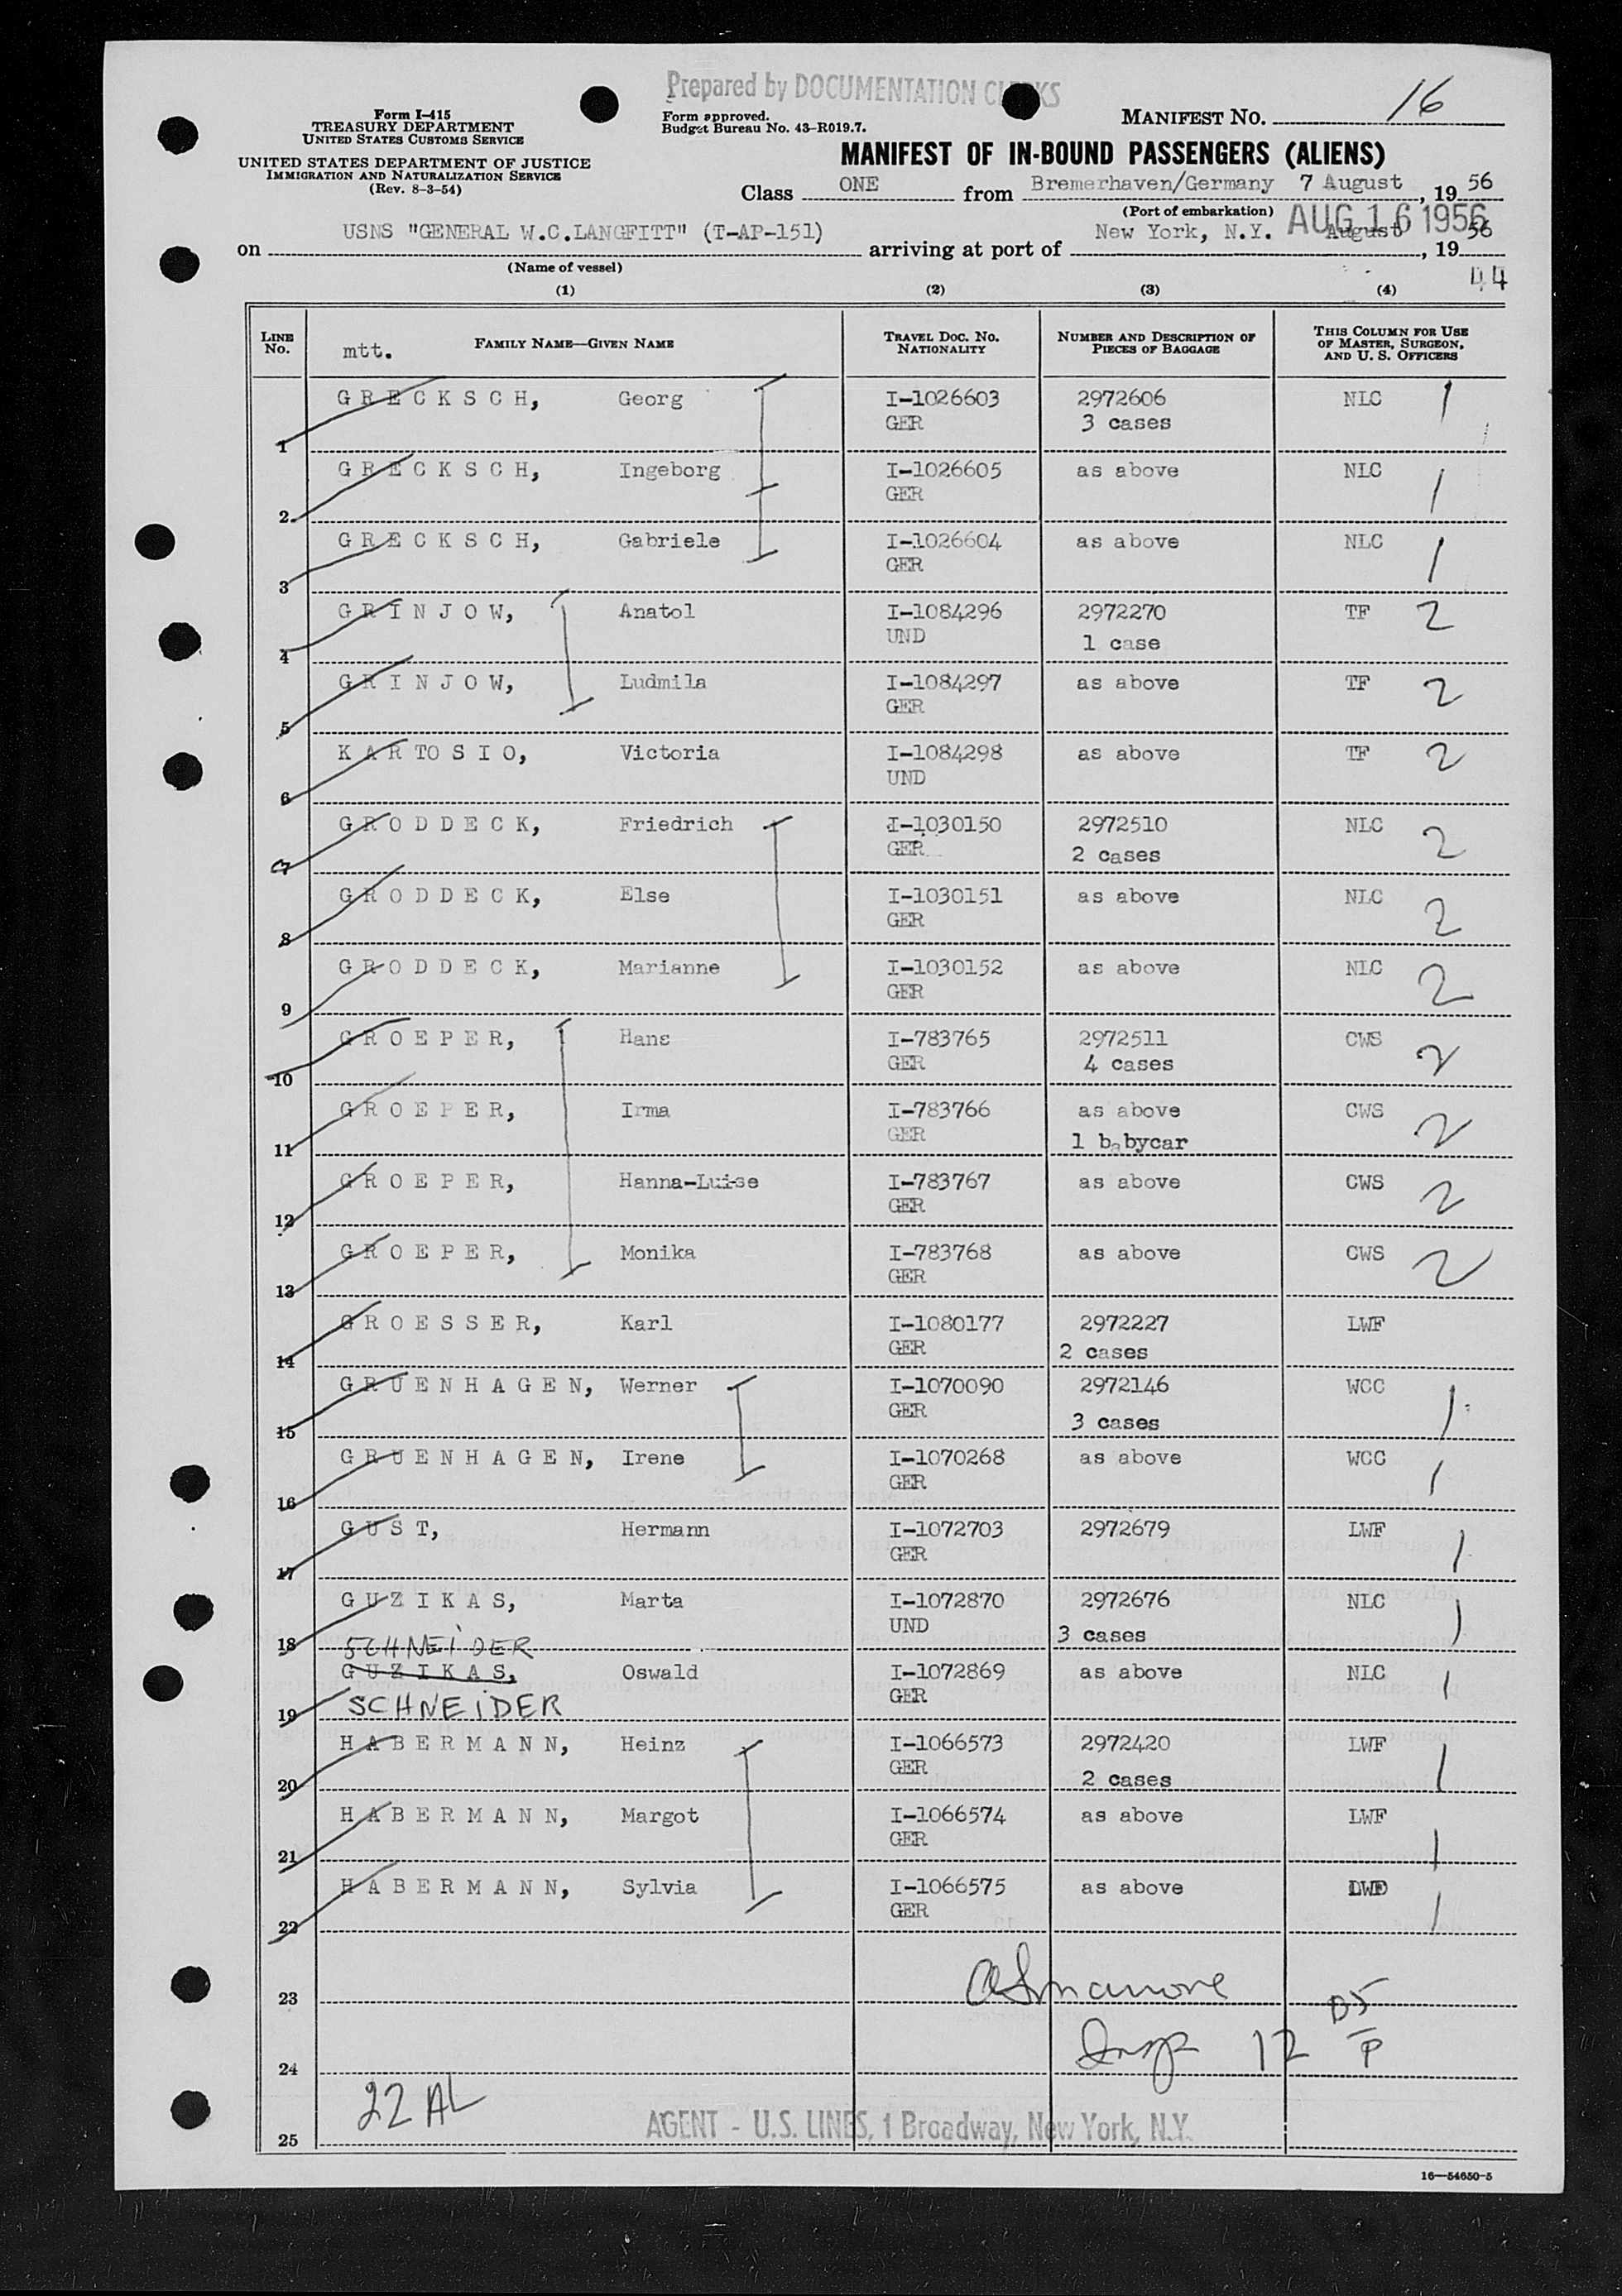 Prepared by DOCUMENTATION CLERKS
Form I-415
TREASURY DEPARTMENT
UNITED STATES CUSTOMS SERVICE
UNITED STATES DEPARTMENT OF JUSTICE
IMMIGRATION AND NATURALIZATION SERVICE
(Rev. 8-3-54)
Form approved.
Budget Bureau No. 43-R019.7.
MANIFEST NO. 16
MANIFEST OF IN-BOUND PASSENGERS (ALIENS)
Class ONE from Bremerhaven/Germany 7 August, 19 56
(Port of embarkation)
AUG 16 1956
on USNS "GENERAL W.C.LANGFITT" (T-AP-151) arriving at port of New York, N.Y. August, 19 56
(Name of vessel)
44
(1) (2) (3) (4)
LINE NO. mtt. FAMILY NAME—GIVEN NAME TRAVEL DOC. NO. NATIONALITY NUMBER AND DESCRIPTION OF PIECES OF BAGGAGE THIS COLUMN FOR USE OF MASTER, SURGEON, AND U. S. OFFICERS
1 GRECKSCH, Georg I-1026603 GER 2972606 3 cases NLC 1
2 GRECKSCH, Ingeborg I-1026605 GER as above NLC 1
3 GRECKSCH, Gabriele I-1026604 GER as above NLC 1
4 GRINJOW, Anatol I-1084296 UND 2972270 1 case TF 2
5 GRINJOW, Ludmila I-1084297 GER as above TF 2
6 KARTOSIO, Victoria I-1084298 UND as above TF 2
7 GRODDECK, Friedrich I-1030150 GER 2972510 2 cases NLC 2
8 GRODDECK, Else I-1030151 GER as above NLC 2
9 GRODDECK, Marianne I-1030152 GER as above NLC 2
10 GROEPER, Hans I-783765 GER 2972511 4 cases CWS 2
11 GROEPER, Irma I-783766 GER as above 1 babycar CWS 2
12 GROEPER, Hanna-Luise I-783767 GER as above CWS 2
13 GROEPER, Monika I-783768 GER as above CWS 2
14 GROESSER, Karl I-1080177 GER 2972227 2 cases LWF
15 GRUENHAGEN, Werner I-1070090 GER 2972146 3 cases WCC 1
16 GRUENHAGEN, Irene I-1070268 GER as above WCC 1
17 GUST, Hermann I-1072703 GER 2972679 LWF 1
18 GUZIKAS, Marta I-1072870 UND 2972676 3 cases NLC 1
SCHNEIDER
19 GUZIKAS, Oswald I-1072869 GER as above NLC 1
SCHNEIDER
20 HABERMANN, Heinz I-1066573 GER 2972420 2 cases LWF 1
21 HABERMANN, Margot I-1066574 GER as above LWF 1
22 HABERMANN, Sylvia I-1066575 GER as above 1
23
24 Insp 12
22 AL
25
AGENT - U.S. LINES, 1 Broadway, New York, N.Y.
16—54650-5